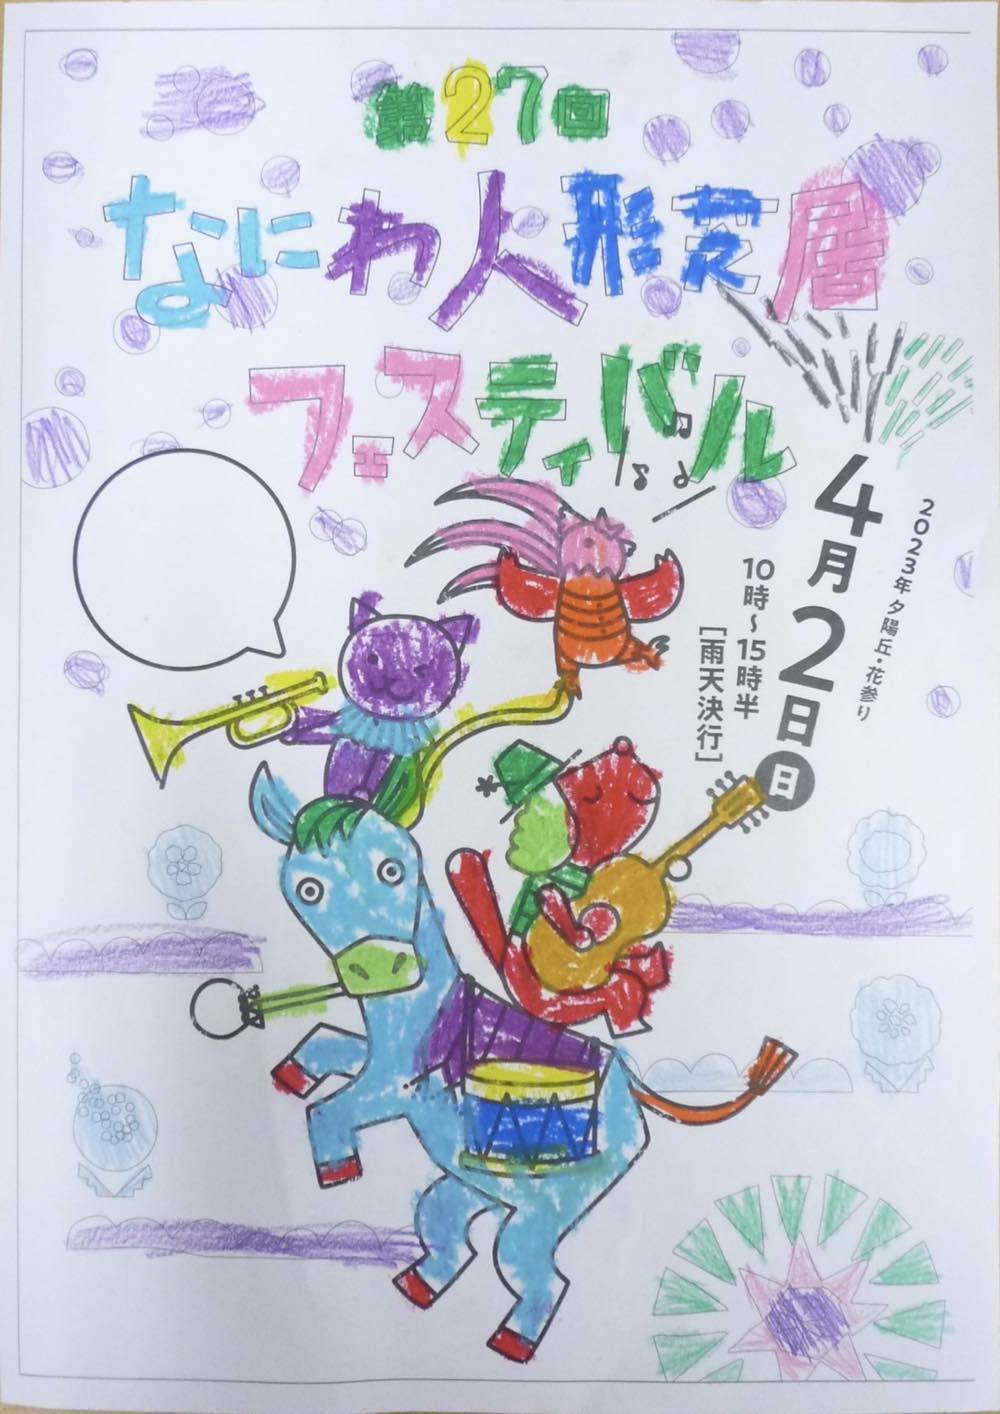 第27回
なにわ人形芝居
フェスティバル
2023年 夕陽丘・花参り
4月2日日
10時～15時半
[雨天決行]